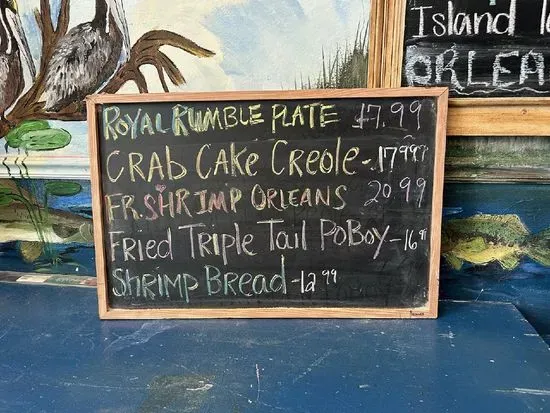 Island
ORLEA
ROYAL RUMBLE PLATE 17.99
CRAB CAKE CREOLE-.1799
FR.SHRIMP ORLEANS 20.99
FRIED TRIPLE TAIL POBOY-16
SHRIMP BREAD-12 99